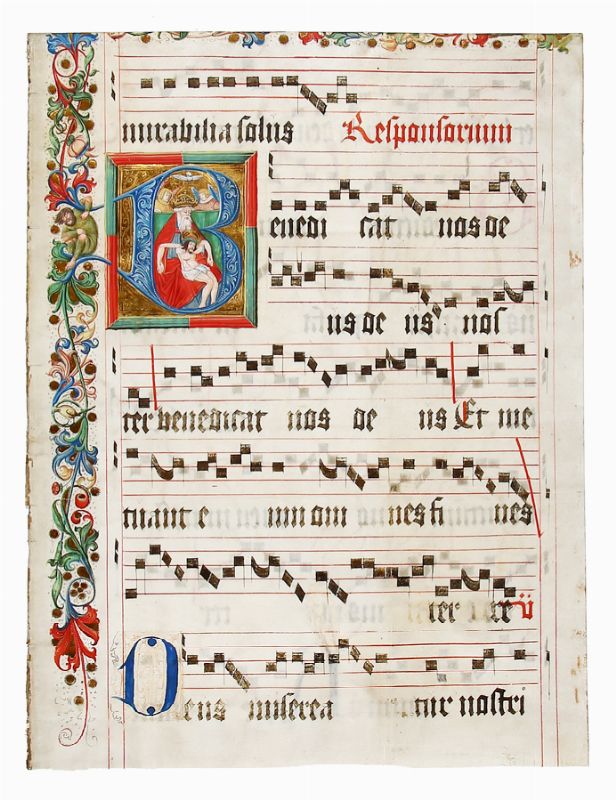 mirabilia solus Responsorium
Benedi cat nos de
us de us nos
ter benedicat nos de us Et me
tuant e um om nes fi nes
ter
Deus miserea tur nostri